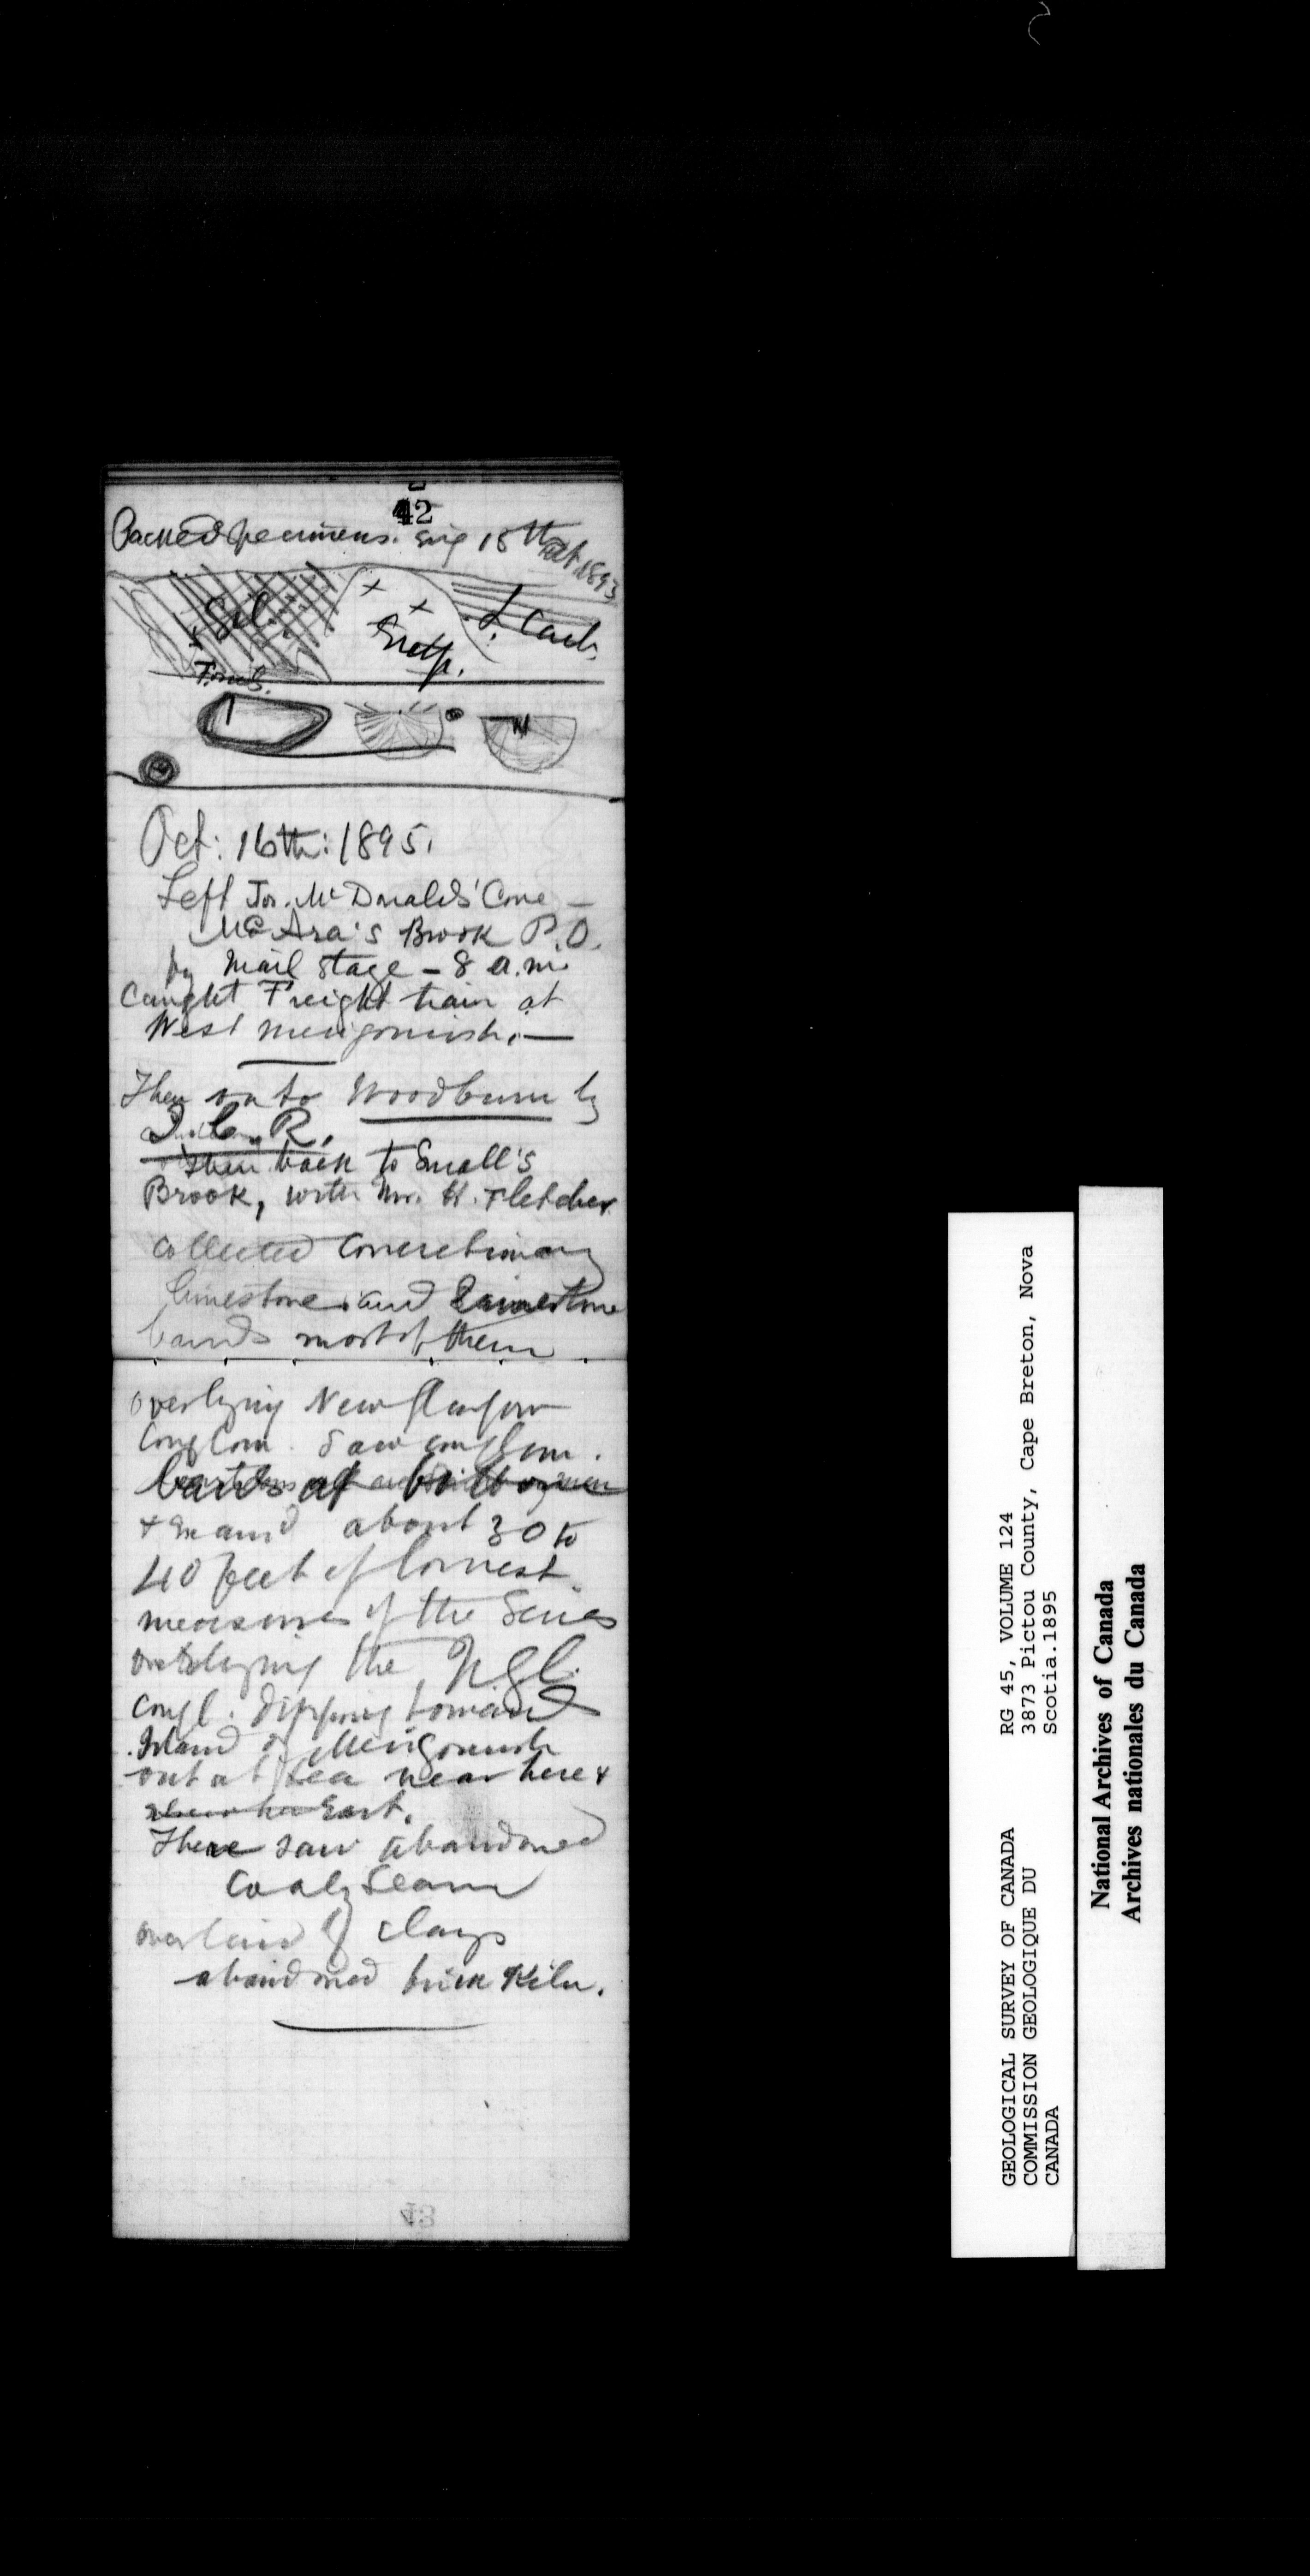 42
Packed specimens. Evg 15th Oct 1895
Sil.
L. Carb.
Erup.
Fossils.
Oct: 16th: 1895.
Left Jos. McDonald's' Cove —
McAra's Brook P.O.
by Mail stage – 8 a.m.
Caught Freight train at
West Merigomish. —
Then on to Woodburn by
I. C. R.
then back to Small's
Brook, with Mr. H. Fletcher
Collected Concretionary
limestone and Limestone
bands most of them
overlying New Glasgow
Conglom. Saw conglom.
bands at
& Exam'd about 30 to
40 feet of lowest
measures of the Series
overlying the N. G.
Congl. dipping toward
Island of Merigomish
out at Sea near here &
East.
There saw abandoned
Coaly Seam
overlaid of clays
abandoned brick Kiln.
43
GEOLOGICAL SURVEY OF CANADA
COMMISSION GEOLOGIQUE DU
CANADA
RG 45, VOLUME 124
3873 Pictou County, Cape Breton, Nova
Scotia.1895
National Archives of Canada
Archives nationales du Canada